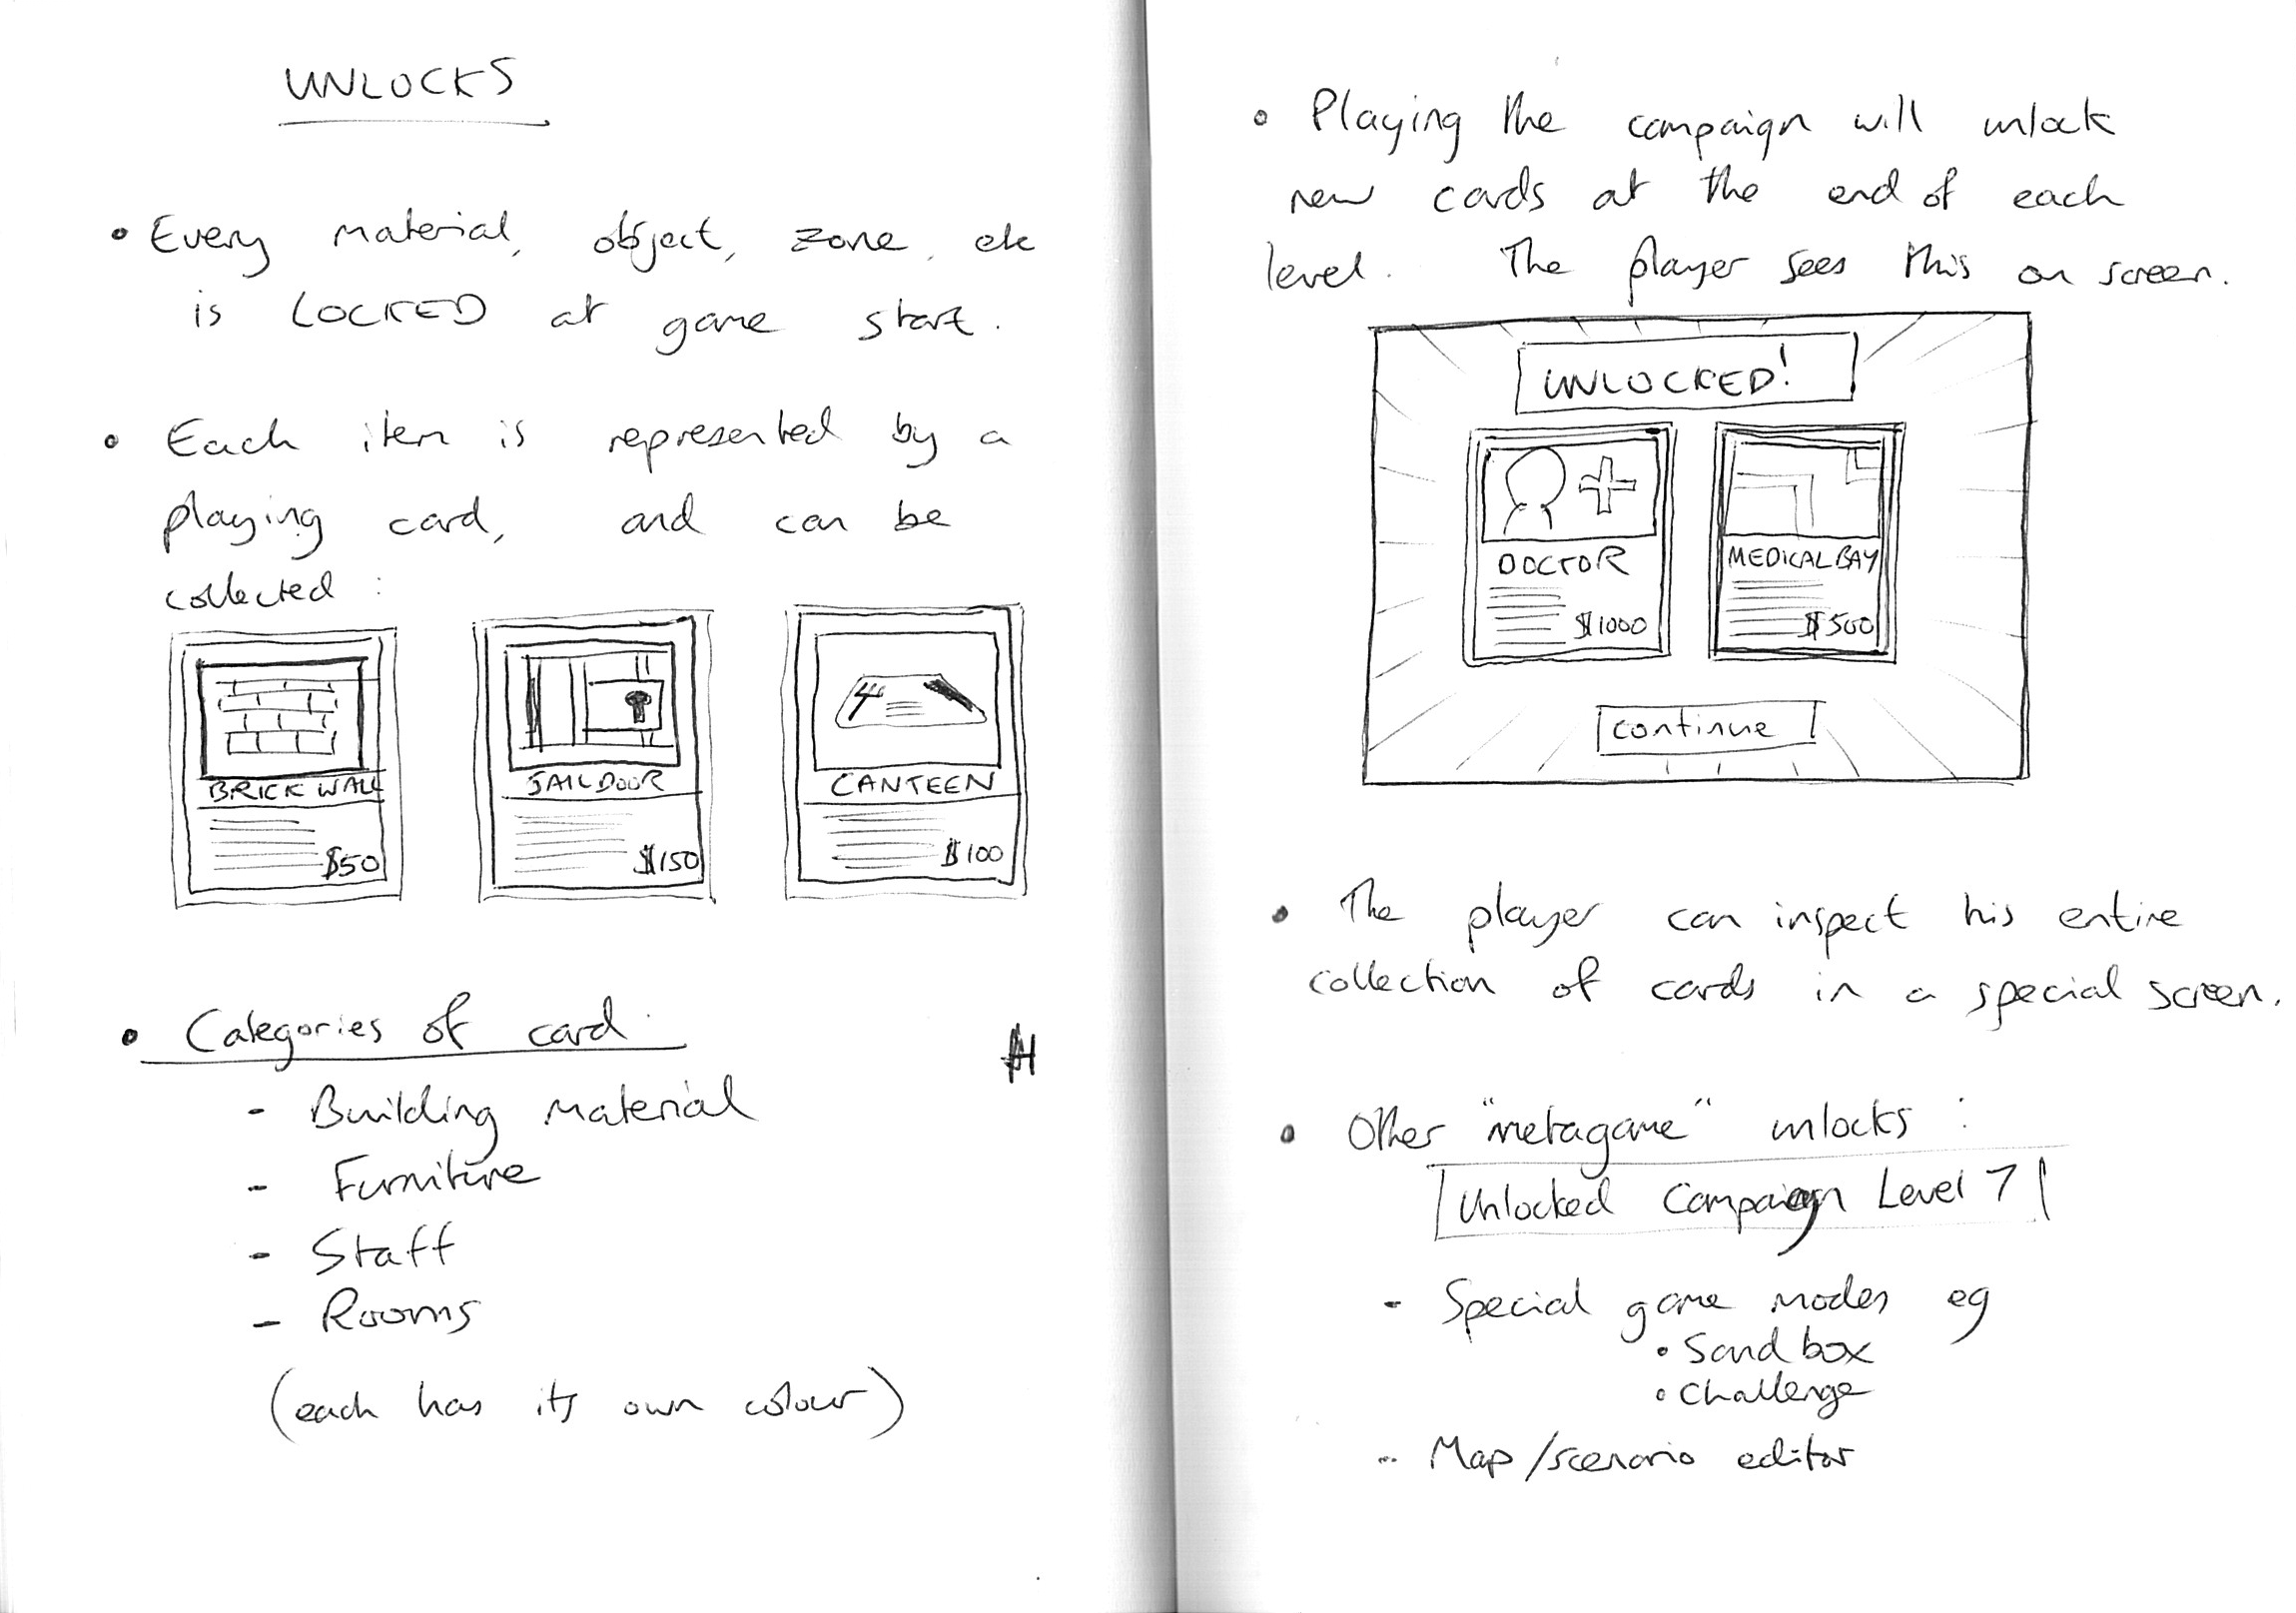 UNLOCKS
• Every material, object, zone, etc
is LOCKED at game start.
• Each item is represented by a
playing card, and can be
collected :
BRICK WALL
$50
JAIL DOOR
$150
CANTEEN
$100
• Categories of card
- Building material
- Furniture
- Staff
- Rooms
(each has its own colour)
• Playing the campaign will unlock
new cards at the end of each
level. The player sees this on screen.
UNLOCKED!
DOCTOR
$1000
MEDICAL BAY
$500
continue
• The player can inspect his entire
collection of cards in a special screen.
• Other "metagame" unlocks :
Unlocked Campaign Level 7
- Special game modes eg
• Sandbox
• Challenge
- Map/scenario editor